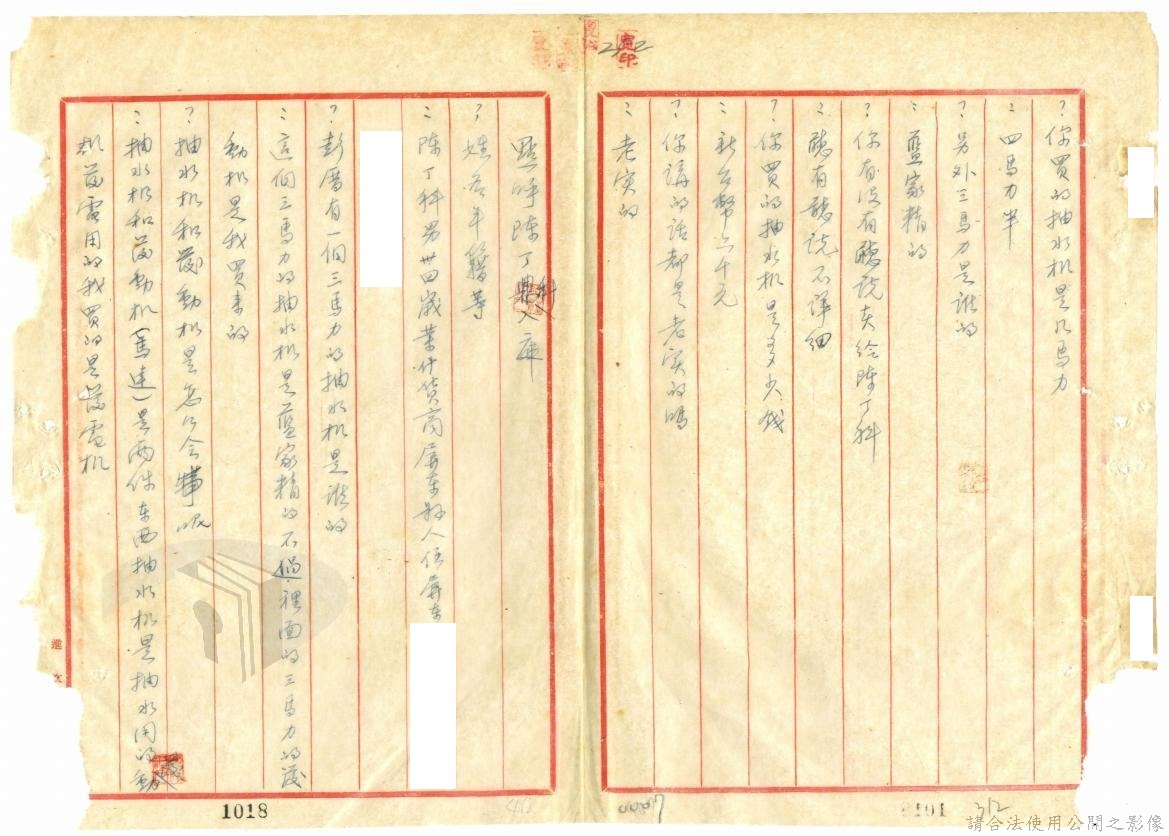 ？你買的抽水机是几馬力
：四馬力半
？另外三馬力是誰的
：藍家精的
？你有没有聽說卖给陈丁科
：聽有聽說不详細
？你買的抽水机是多少钱
：新台幣六千元
？你講的話都是老实的嗎
：老实的
點呼陈丁科入庭
？姓名年籍等
：陈丁科男卅四歲業什货商屏东县人住屏东
？彭厝有一個三馬力的抽水机是誰的
：這個三馬力的抽水机是藍家精的不過裡面的三馬力的發
動机是我買来的
？抽水机和發動机是怎么会事呢
：抽水机和發動机(馬達)是兩件东西抽水机是抽水用的
机發電用的我買的是發電机
1018
請合法使用公開之影像